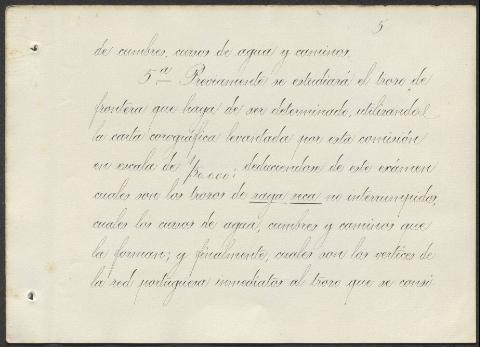 5
de cumbres, cursos de agua y caminos.
5ª Previamente se estudiará el trozo de
frontera que haya de ser determinado, utilizando
la carta corográfica levantada por esta comisión
en escala de 1/50.000; deduciendose de este exámen
cuales son los trozos de raya seca no interrumpidos,
cuales los cursos de agua, cumbres y caminos que
la forman; y finalmente, cuales son los vertices de
la red portuguesa inmediatos al trozo que se consi